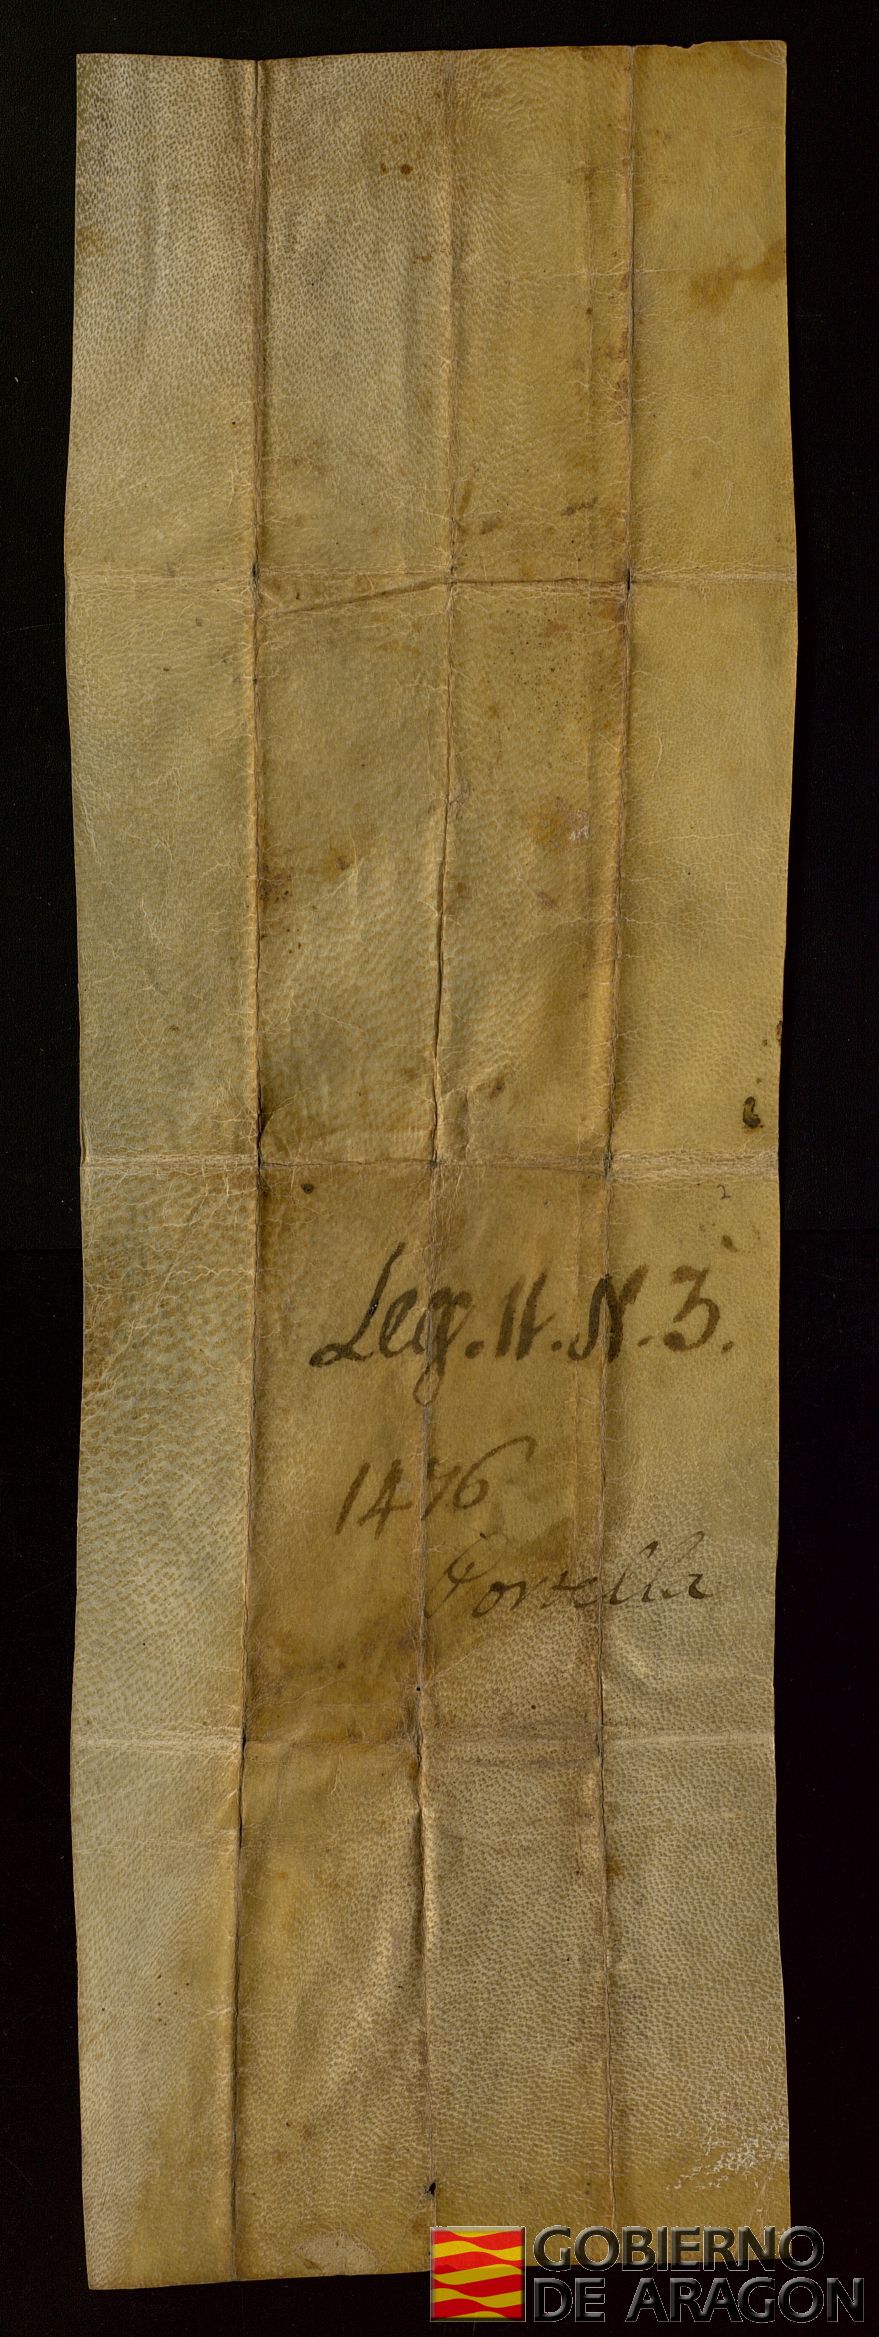 Leg. 11. N. 3.
1476
Portella
GOBIERNO
DE ARAGON